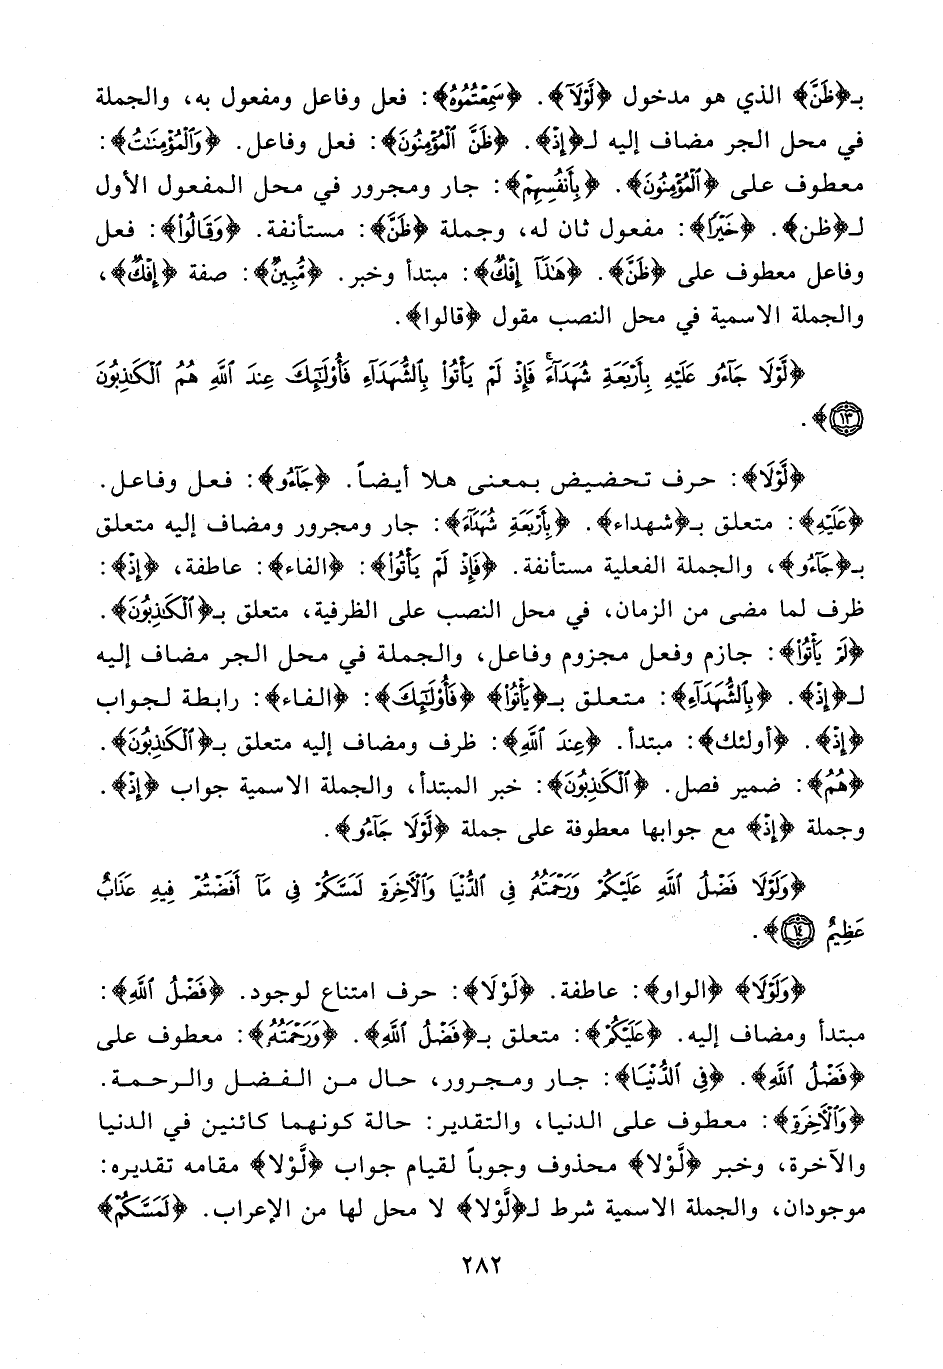 بـ﴿ظَنَّ﴾ الذي هو مدخول ﴿لَّوْلَآ﴾. ﴿سَمِعْتُمُوهُ﴾: فعل وفاعل ومفعول به، والجملة
في محل الجر مضاف إليه لـ﴿إِذْ﴾. ﴿ظَنَّ ٱلْمُؤْمِنُونَ﴾: فعل وفاعل. ﴿وَٱلْمُؤْمِنَٰتُ﴾:
معطوف على ﴿ٱلْمُؤْمِنُونَ﴾. ﴿بِأَنفُسِهِمْ﴾: جار ومجرور في محل المفعول الأول
لـ﴿ظن﴾. ﴿خَيْرًا﴾: مفعول ثان له، وجملة ﴿ظَنَّ﴾: مستأنفة. ﴿وَقَالُوا۟﴾: فعل
وفاعل معطوف على ﴿ظَنَّ﴾. ﴿هَٰذَآ إِفْكٌ﴾: مبتدأ وخبر. ﴿مُّبِينٌ﴾: صفة ﴿إِفْكٌ﴾،
والجملة الاسمية في محل النصب مقول ﴿قالوا﴾.
﴿لَّوْلَا جَآءُو عَلَيْهِ بِأَرْبَعَةِ شُهَدَآءَ ۚ فَإِذْ لَمْ يَأْتُوا۟ بِٱلشُّهَدَآءِ فَأُو۟لَٰٓئِكَ عِندَ ٱللَّهِ هُمُ ٱلْكَٰذِبُونَ
١٣﴾.
﴿لَّوْلَا﴾: حرف تحضيض بمعنى هلا أيضاً. ﴿جَآءُو﴾: فعل وفاعل.
﴿عَلَيْهِ﴾: متعلق بـ﴿شهداء﴾. ﴿بِأَرْبَعَةِ شُهَدَآءَ﴾: جار ومجرور ومضاف إليه متعلق
بـ﴿جَآءُو﴾، والجملة الفعلية مستأنفة. ﴿فَإِذْ لَمْ يَأْتُوا۟﴾: ﴿الفاء﴾: عاطفة، ﴿إِذْ﴾:
ظرف لما مضى من الزمان، في محل النصب على الظرفية، متعلق بـ﴿ٱلْكَٰذِبُونَ﴾.
﴿لَمْ يَأْتُوا۟﴾: جازم وفعل مجزوم وفاعل، والجملة في محل الجر مضاف إليه
لـ﴿إِذْ﴾. ﴿بِٱلشُّهَدَآءِ﴾: متعلق بـ﴿يَأْتُوا۟﴾ ﴿فَأُو۟لَٰٓئِكَ﴾: ﴿الفاء﴾: رابطة لجواب
﴿إِذْ﴾. ﴿أولئك﴾: مبتدأ. ﴿عِندَ ٱللَّهِ﴾: ظرف ومضاف إليه متعلق بـ﴿ٱلْكَٰذِبُونَ﴾.
﴿هُمُ﴾: ضمير فصل. ﴿ٱلْكَٰذِبُونَ﴾: خبر المبتدأ، والجملة الاسمية جواب ﴿إِذْ﴾.
وجملة ﴿إِذْ﴾ مع جوابها معطوفة على جملة ﴿لَّوْلَا جَآءُو﴾.
﴿وَلَوْلَا فَضْلُ ٱللَّهِ عَلَيْكُمْ وَرَحْمَتُهُۥ فِى ٱلدُّنْيَا وَٱلْـَٔاخِرَةِ لَمَسَّكُمْ فِى مَآ أَفَضْتُمْ فِيهِ عَذَابٌ
عَظِيمٌ ١٤﴾.
﴿وَلَوْلَا﴾ ﴿الواو﴾: عاطفة. ﴿لَوْلَا﴾: حرف امتناع لوجود. ﴿فَضْلُ ٱللَّهِ﴾:
مبتدأ ومضاف إليه. ﴿عَلَيْكُمْ﴾: متعلق بـ﴿فَضْلُ ٱللَّهِ﴾. ﴿وَرَحْمَتُهُۥ﴾: معطوف على
﴿فَضْلُ ٱللَّهِ﴾. ﴿فِى ٱلدُّنْيَا﴾: جار ومجرور، حال من الفضل والرحمة.
﴿وَٱلْـَٔاخِرَةِ﴾: معطوف على الدنيا، والتقدير: حالة كونهما كائنين في الدنيا
والآخرة، وخبر ﴿لَّوْلا﴾ محذوف وجوباً لقيام جواب ﴿لَّوْلا﴾ مقامه تقديره:
موجودان، والجملة الاسمية شرط لـ﴿لَّوْلا﴾ لا محل لها من الإعراب. ﴿لَمَسَّكُمْ﴾
٢٨٢